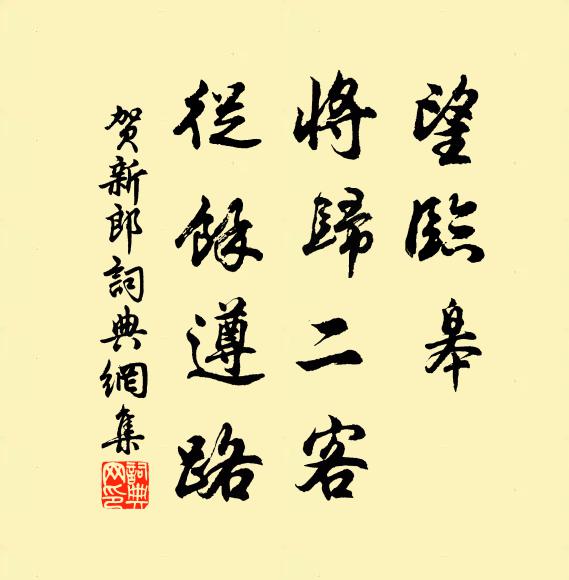 望臨皋
將歸二客
從餘遵路
贺新郎詞典網集
詞典网印